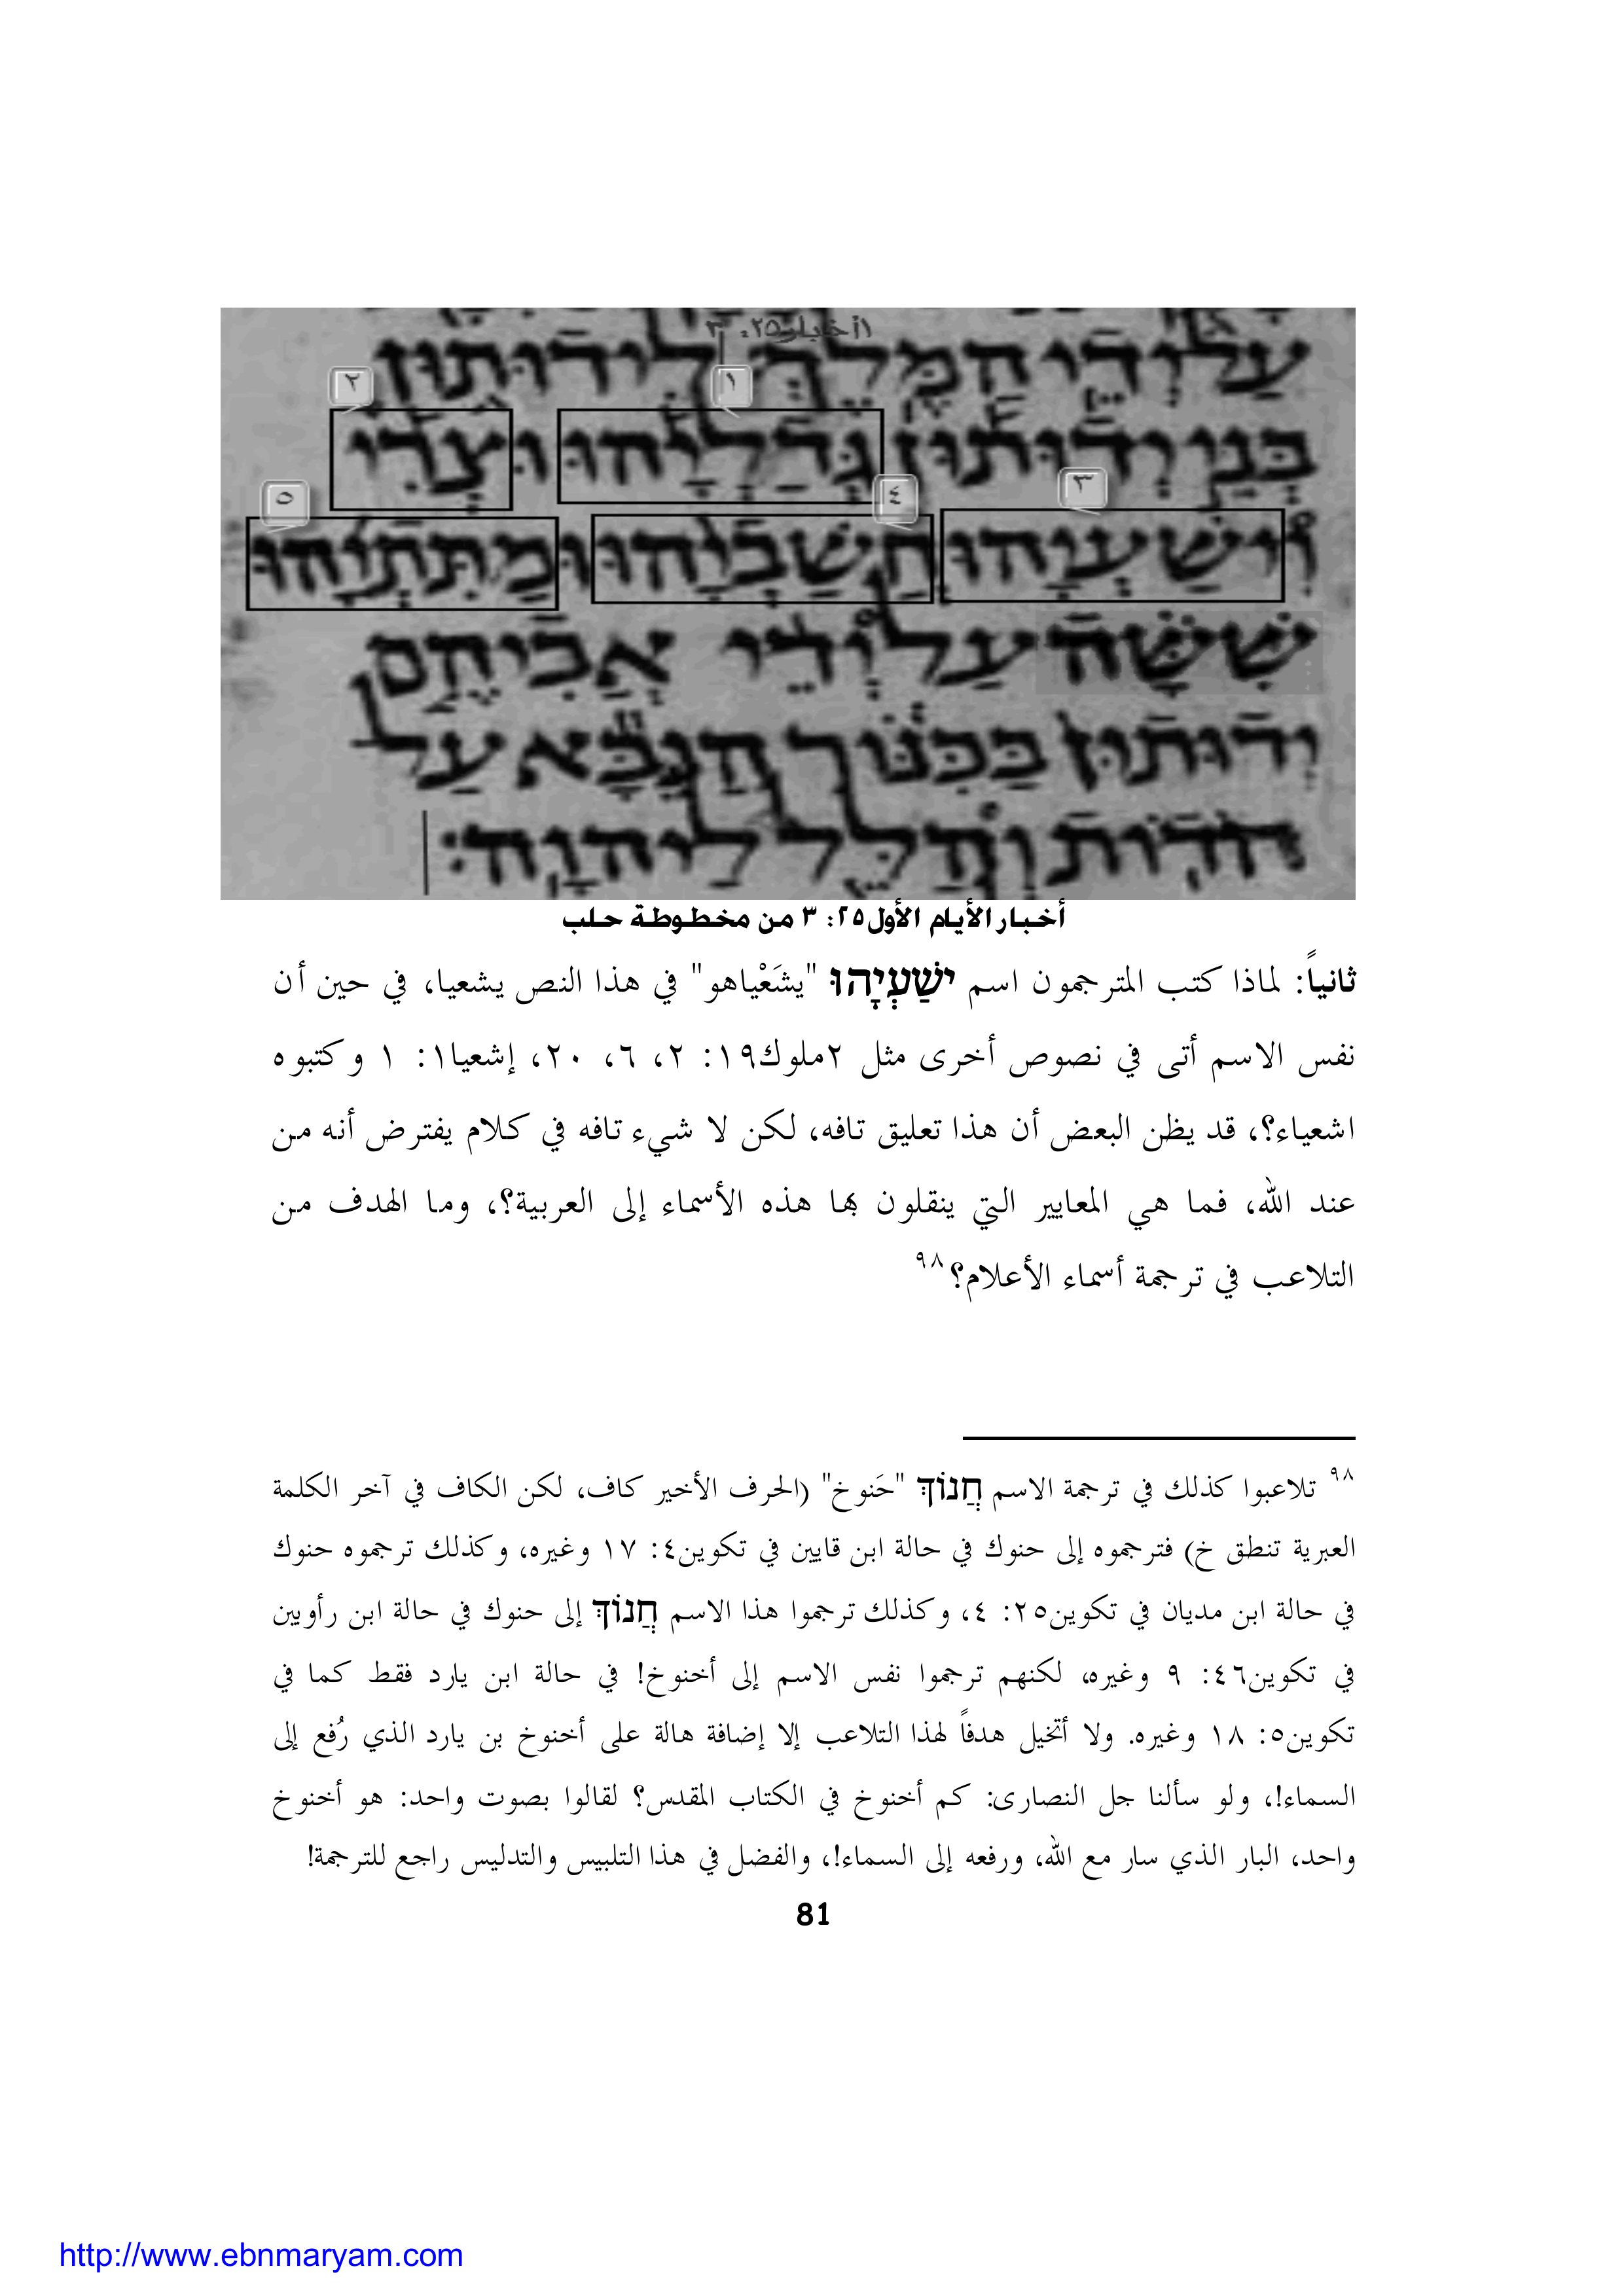 ١أخبار٢٥: ٣
על ידי המלך לידותון
٢ ١
בני ידותון גדליהו וצרי
٥ ٤ ٣
וישעיהו חשביהו ומתתיהו
ששה על ידי אביהם
ידותון בכנור הנבא על
הדות והלל ליהוה:
أخبار الأيام الأول٢٥: ٣ من مخطوطة حلب
ثانياً: لماذا كتب المترجمون اسم יִשַׁעְיָהוּ "يشَعْياهو" في هذا النص يشعيا، في حين أن
نفس الاسم أتى في نصوص أخرى مثل ٢ملوك١٩: ٢، ٦، ٢٠، إشعيا١: ١ وكتبوه
اشعياء؟، قد يظن البعض أن هذا تعليق تافه، لكن لا شيء تافه في كلام يفترض أنه من
عند الله، فما هي المعايير التي ينقلون بها هذه الأسماء إلى العربية؟، وما الهدف من
التلاعب في ترجمة أسماء الأعلام؟٩٨
٩٨ تلاعبوا كذلك في ترجمة الاسم חֲנוֹךְ "حَنوخ" (الحرف الأخير كاف، لكن الكاف في آخر الكلمة
العبرية تنطق خ) فترجموه إلى حنوك في حالة ابن قايين في تكوين٤: ١٧ وغيره، وكذلك ترجموه حنوك
في حالة ابن مديان في تكوين٢٥: ٤، وكذلك ترجموا هذا الاسم חֲנוֹךְ إلى حنوك في حالة ابن رأوبين
في تكوين٤٦: ٩ وغيره، لكنهم ترجموا نفس الاسم إلى أخنوخ! في حالة ابن يارد فقط كما في
تكوين٥: ١٨ وغيره. ولا أتخيل هدفاً لهذا التلاعب إلا إضافة هالة على أخنوخ بن يارد الذي رُفع إلى
السماء!، ولو سألنا جل النصارى: كم أخنوخ في الكتاب المقدس؟ لقالوا بصوت واحد: هو أخنوخ
واحد، البار الذي سار مع الله، ورفعه إلى السماء!، والفضل في هذا التلبيس والتدليس راجع للترجمة!
81
http://www.ebnmaryam.com